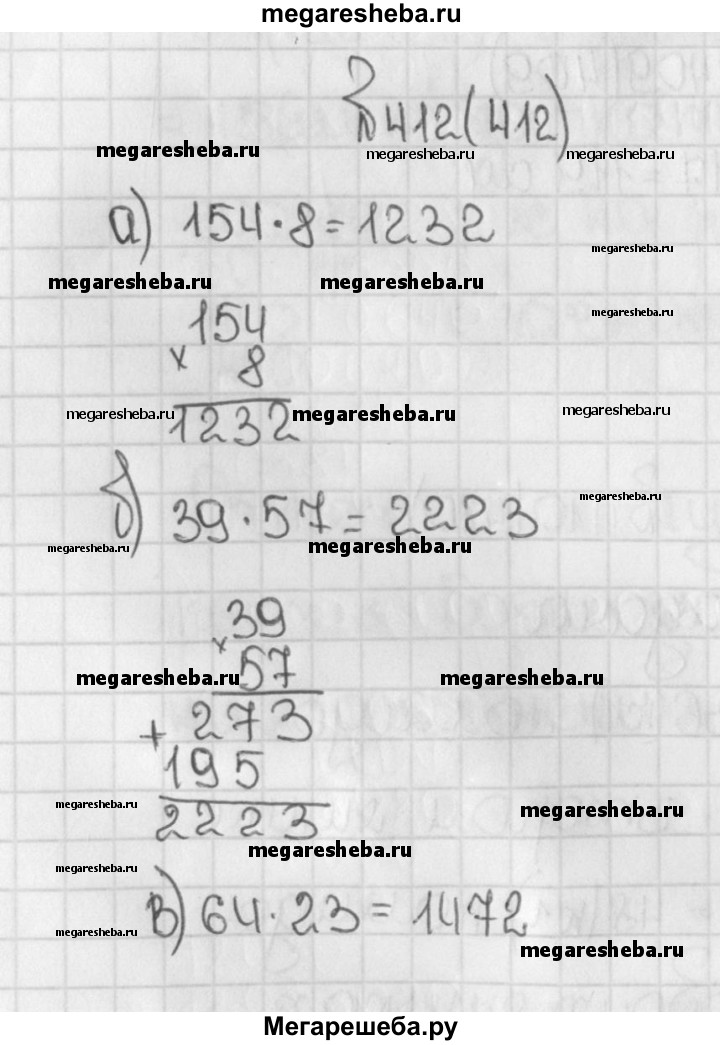 megaresheba.ru
№412(412)
megaresheba.ru megaresheba.ru megaresheba.ru
а) 154·8=1232
megaresheba.ru
megaresheba.ru megaresheba.ru
megaresheba.ru
154
× 8
megaresheba.ru 1232 megaresheba.ru megaresheba.ru
megaresheba.ru
б) 39·57=2223
megaresheba.ru megaresheba.ru
39
× 57
megaresheba.ru megaresheba.ru
+ 273
195
megaresheba.ru megaresheba.ru
2223
megaresheba.ru
megaresheba.ru
в) 64·23=1472
megaresheba.ru
megaresheba.ru
Мегарешеба.ру